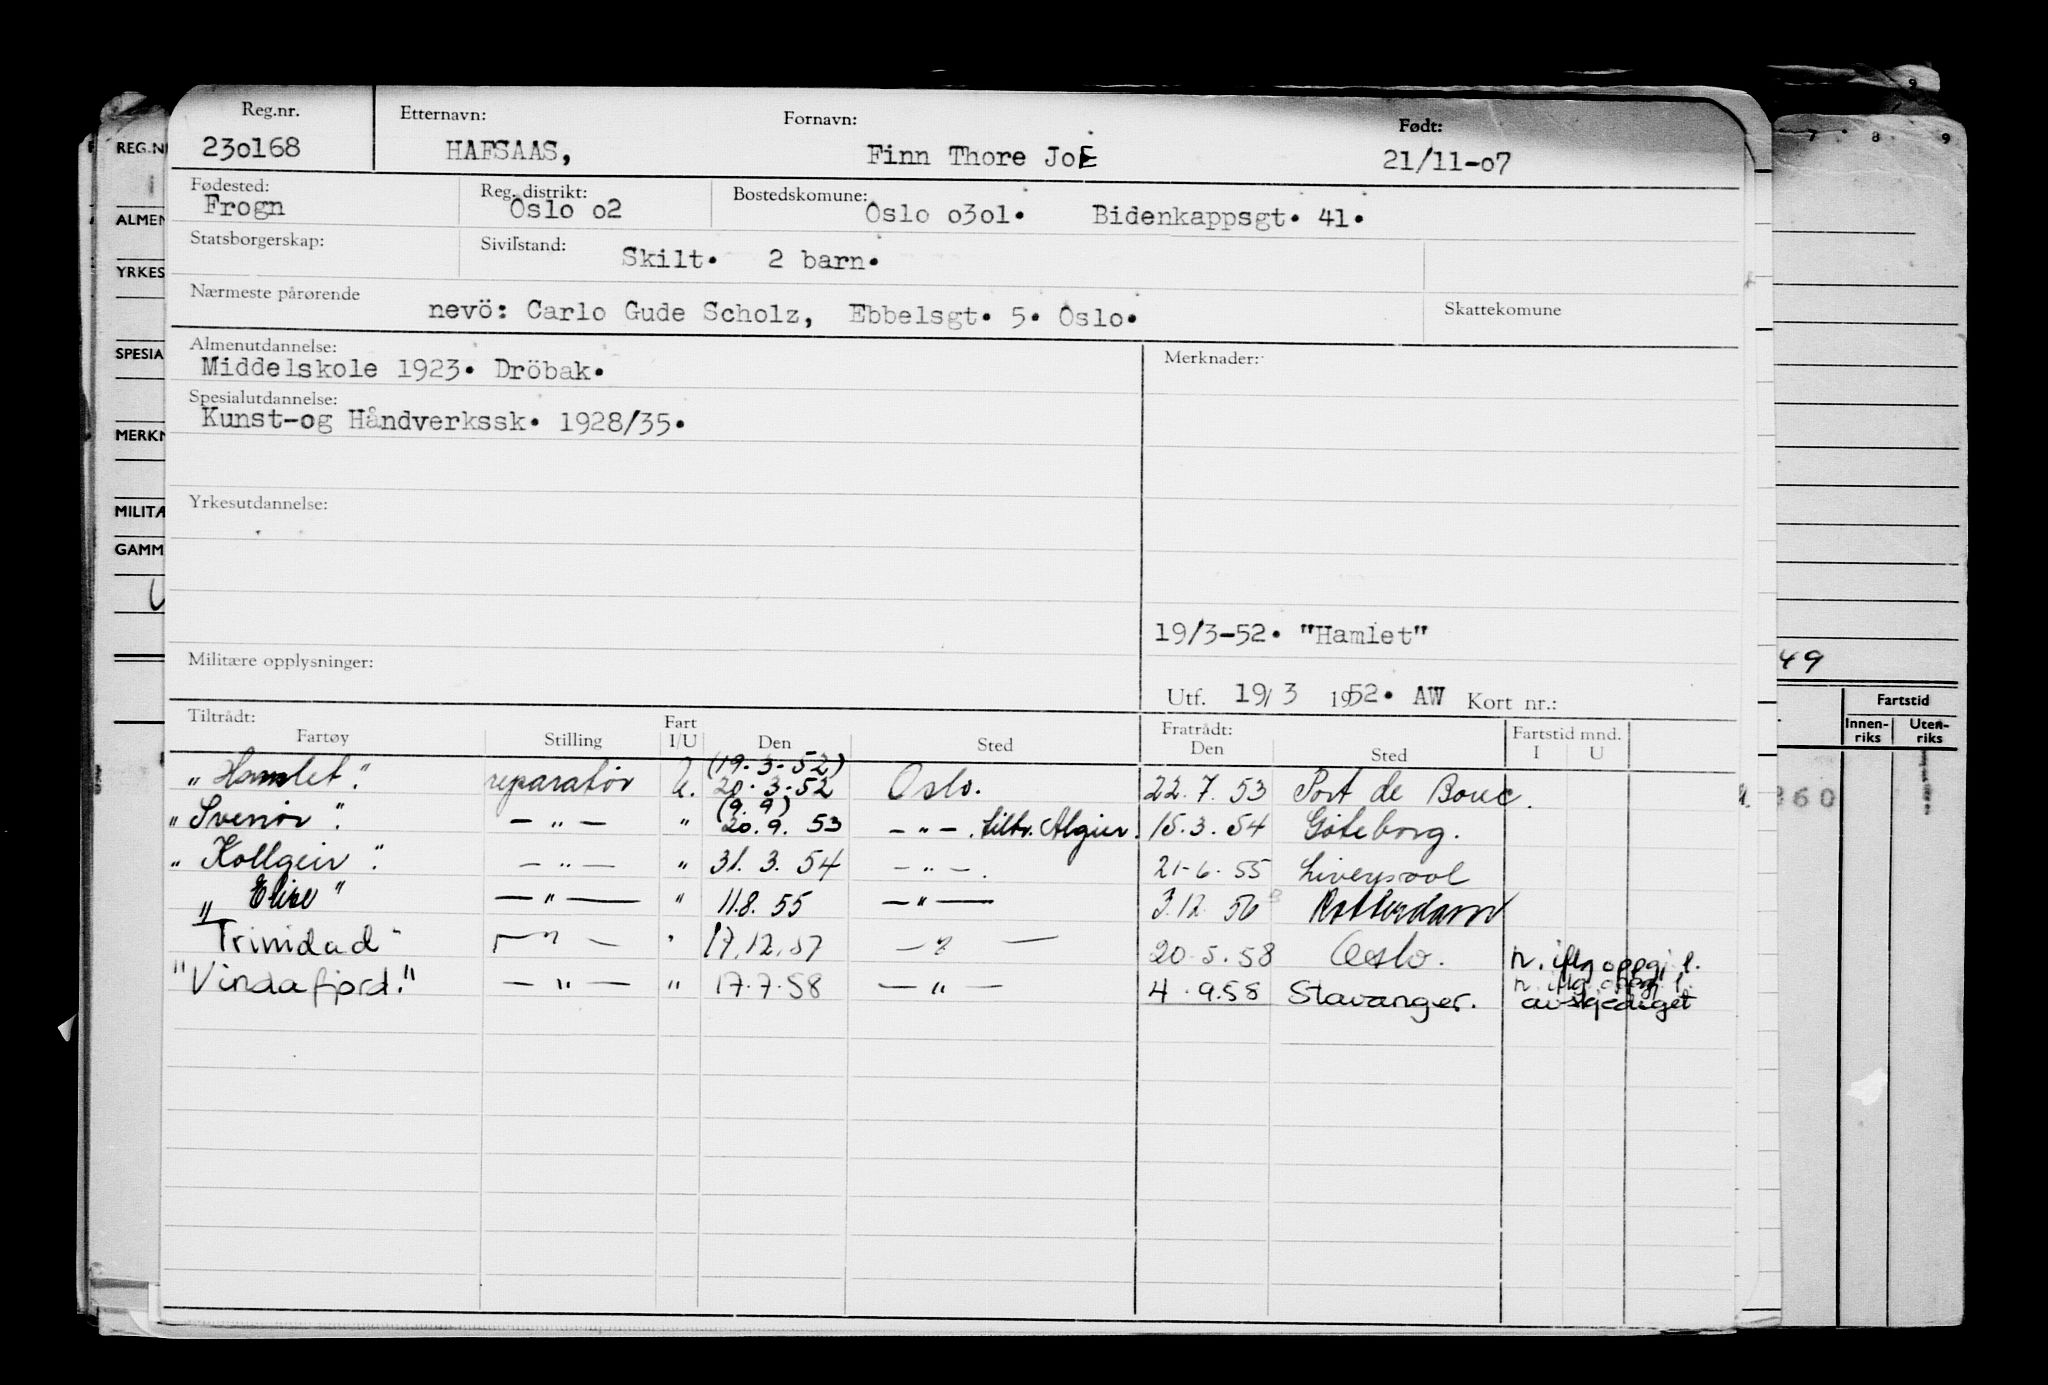 Reg.nr. Etternavn: Fornavn: Født:
230168 HAFSAAS, Finn Thore JoE 21/11-o7
Fødested: Reg. distrikt: Bostedskomune:
Frogn Oslo o2 Oslo o3o1. Bidenkappsgt. 41.
Statsborgerskap: Sivilstand: Skilt. 2 barn.
Nærmeste pårørende nevö: Carlo Gude Scholz, Ebbelsgt. 5. Oslo. Skattekomune
Almenutdannelse: Merknader:
Middelskole 1923. Dröbak.
Spesialutdannelse:
Kunst-og Håndverkssk. 1928/35.
Yrkesutdannelse:
19/3-52. "Hamlet"
Militære opplysninger:
Utf. 19/3 1952. AW Kort nr.:
Tiltrådt: Fratrådt:
Fartøy Stilling Fart I/U Den Sted Den Sted Fartstid mnd. I U
(19.3-52)
„Hamlet". reparatör U. 20.3.52 Oslo. 22.7.53 Port de Bouc.
(9.9)
„Svenör". — " — " 20.9.53 — " — . tiltr. Algier. 15.3.54 Göteborg.
„Kollgeir". — " — " 31.3.54 — " — . 21-6.55 Liverpool
„Elise" — " — " 11.8.55 — " — 3.12.56 Rotterdam
"Trinidad" — " — " 17.12.57 — " — 20.5.58 Oslo. n. iflg oppg. l.
"Vindafjord." — " — " 17.7.58 — " — 4.9.58 Stavanger. n. iflg. oppg. l.
avskjediget
REG.N
ALMEN
YRKES
SPESIA
MERKN
MILITÆ
GAMM
9
7 8 9
49
Fartstid
Innen-riks Uten-riks
360